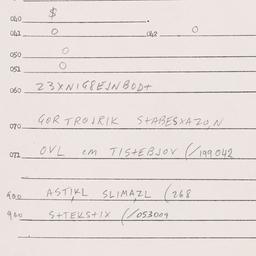 040 $
041 0 042 0
050 0
051 0
060 23XNIG8EJNBOD+
070 GORTROJRIK S+ABESXAZO,N
072 OVL em TISTEBJOV (/199042
900 ASTIKL SLIMAZL (268
900 S+TEKS+IX (/053009